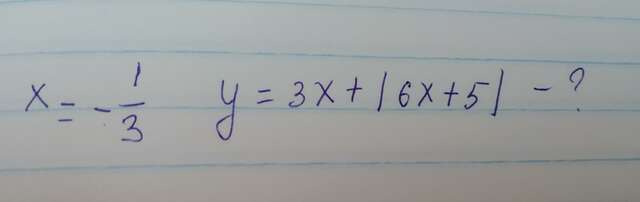 x = -1/3 y = 3x + |6x+5| - ?